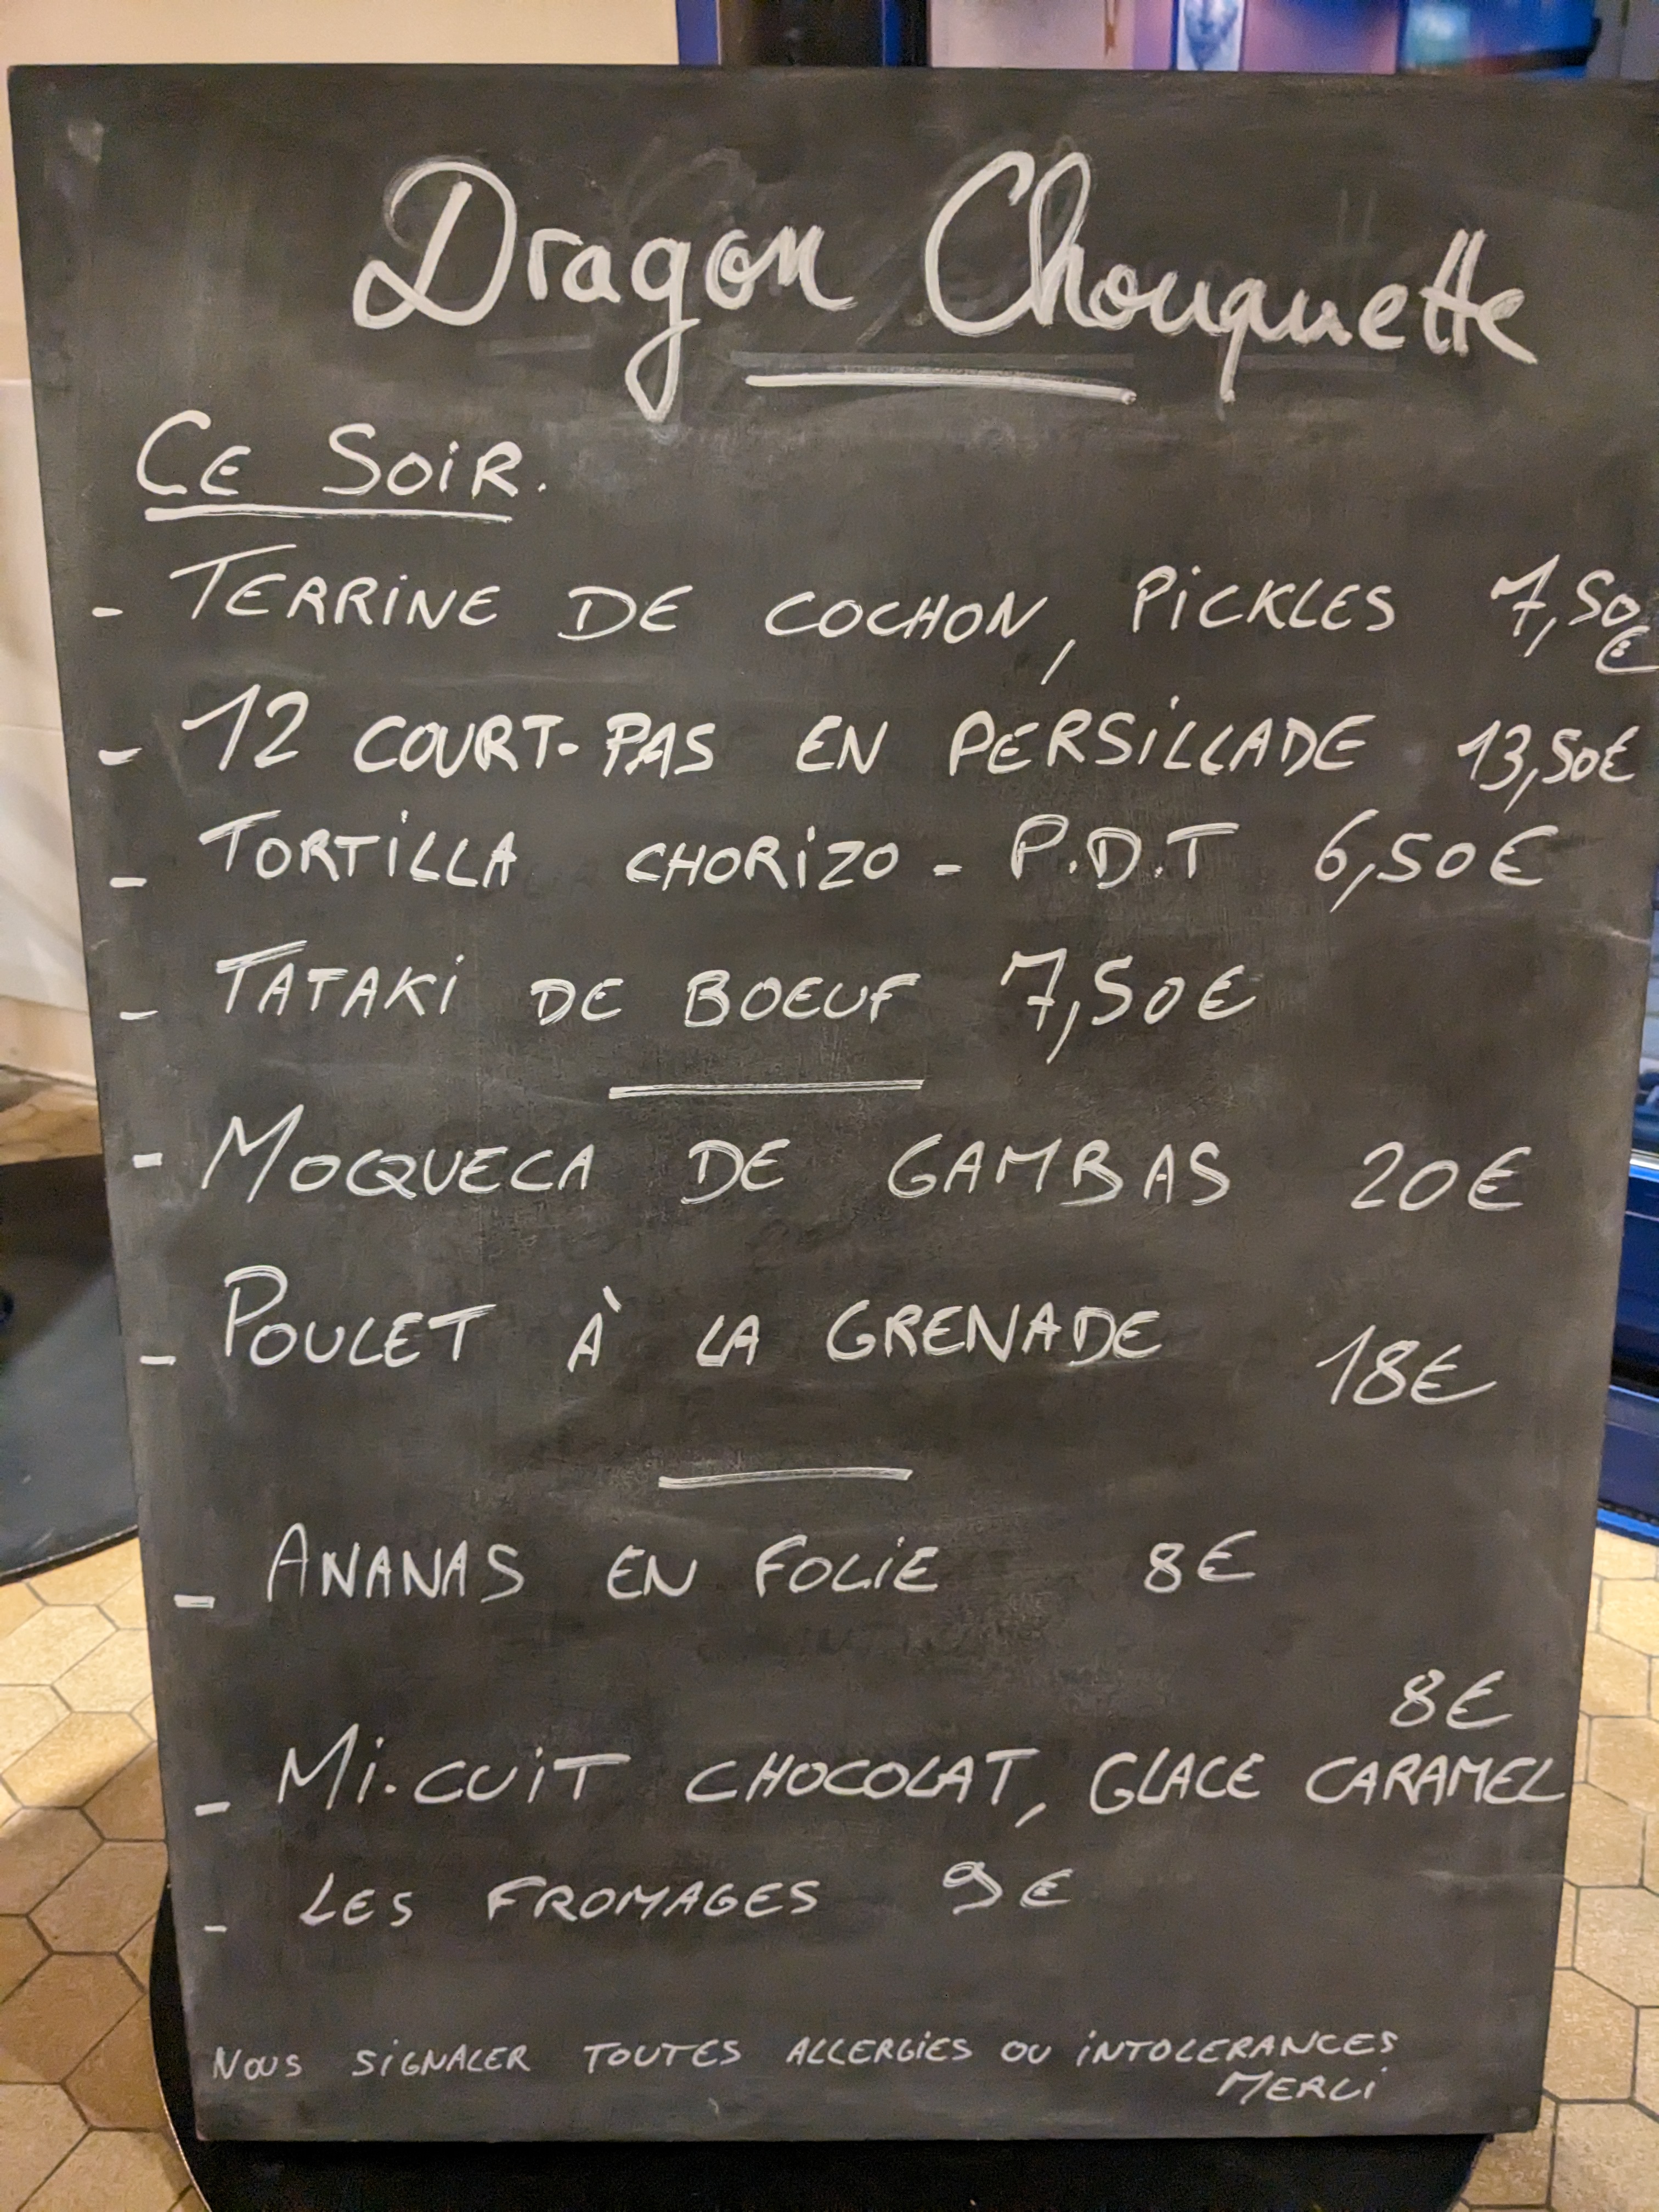 Dragon Chouquette
CE SOIR.
- TERRINE DE COCHON, PICKLES 7,50€
- 12 COURT-PAS EN PERSILLADE 13,50€
- TORTILLA CHORIZO - P.D.T 6,50€
- TATAKI DE BOEUF 7,50€
- MOCQUECA DE GAMBAS 20€
- POULET À LA GRENADE 18€
- ANANAS EN FOLIE 8€
8€
- MI-CUIT CHOCOLAT, GLACE CARAMEL
- LES FROMAGES 9€
NOUS SIGNALER TOUTES ALLERGIES OU INTOLERANCES
MERCI